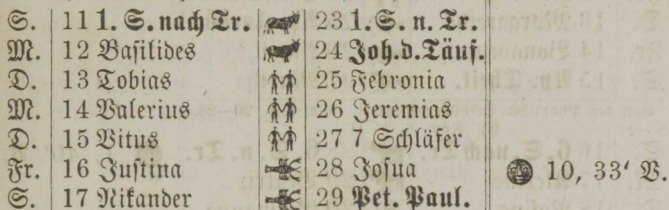 S. 11 1. S. nach Tr. 23 1. S. n. Tr.
M. 12 Basilides 24 Joh. d. Täuf.
D. 13 Tobias 25 Febronia
M. 14 Valerius 26 Jeremias
D. 15 Vitus 27 7 Schläfer
Fr. 16 Justina 28 Josua 10, 33' V.
S. 17 Nikander 29 Pet. Paul.